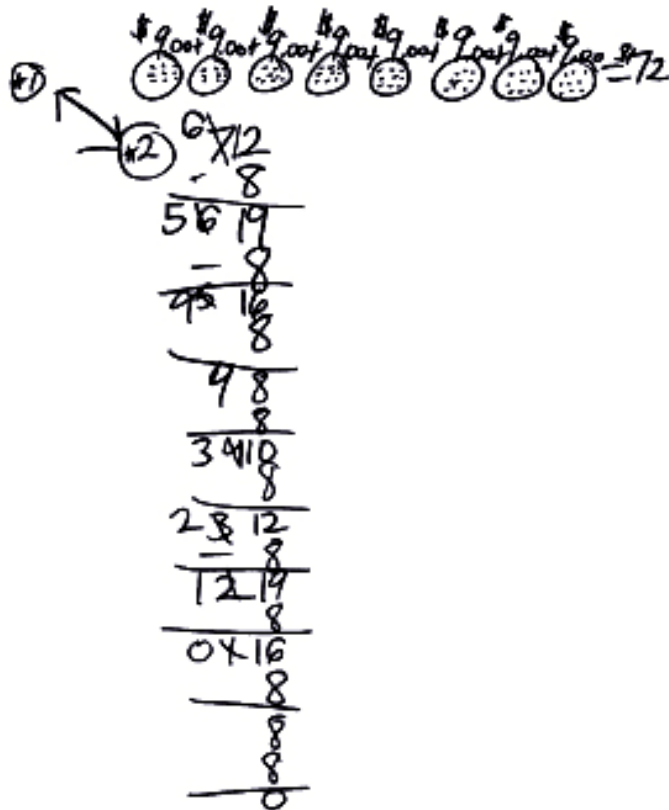 $9.00+ $9.00+ $9.00+ $9.00+ $9.00+ $9.00+ $9.00+ $9.00 = $72
#1
#2
6 7 12
- 8
5 6 14
- 8
4 5 16
8
4 8
8
3 4 10
8
2 3 12
- 8
1 2 14
8
0 1 16
8
8
8
0